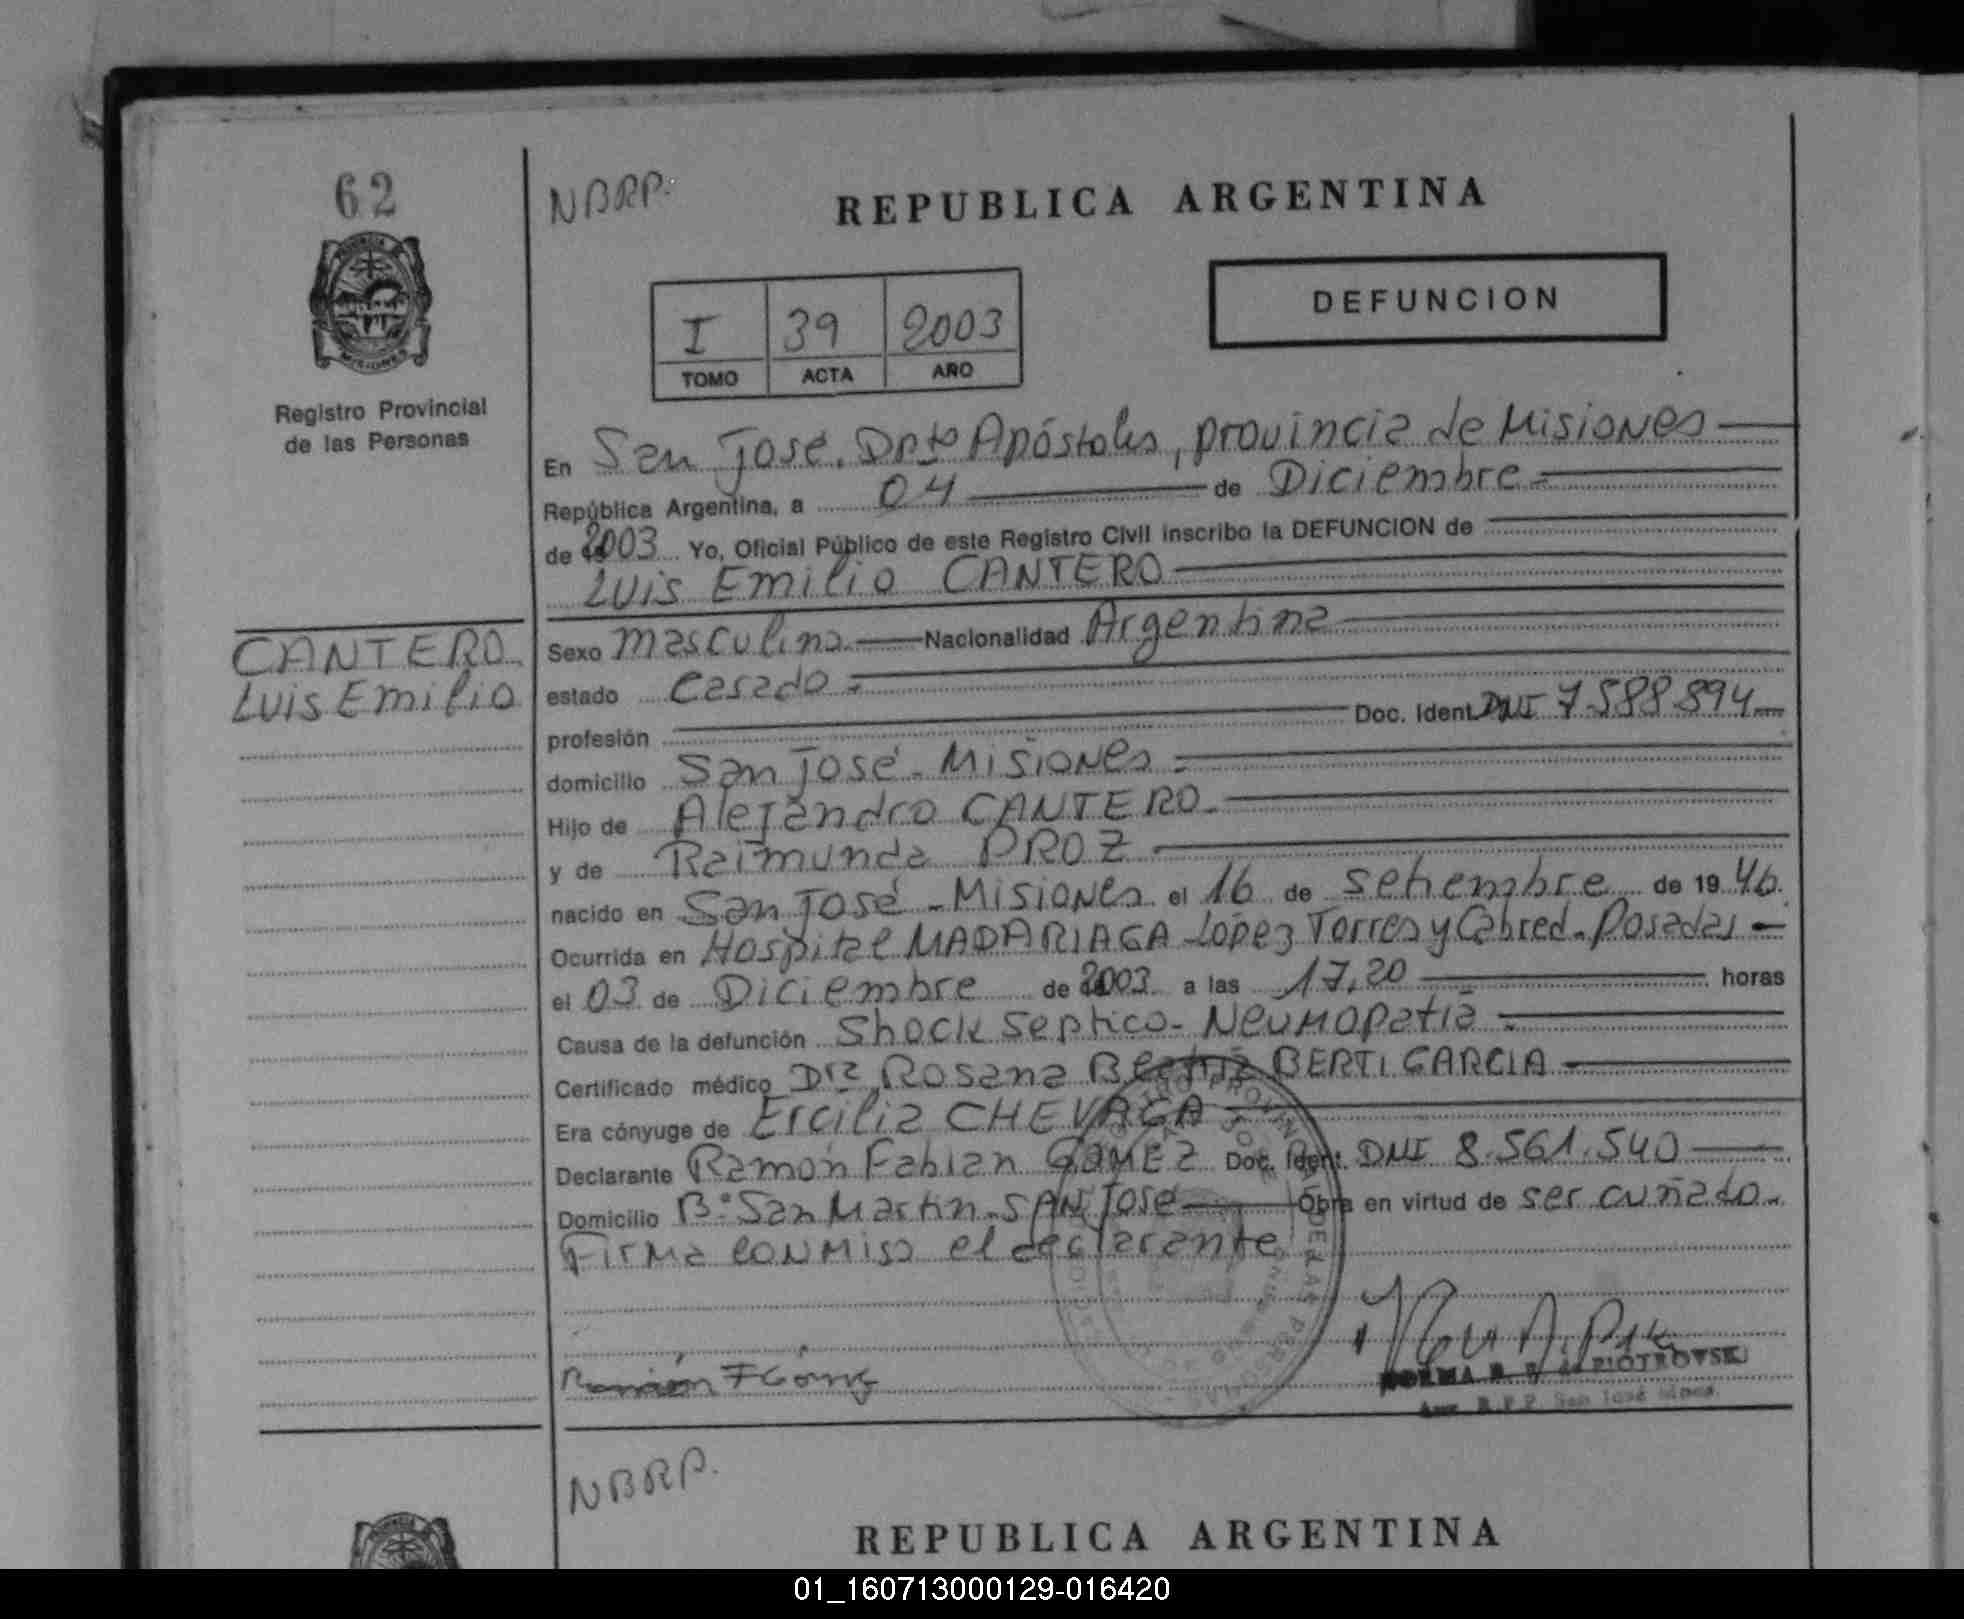 62
NBRP.
REPUBLICA ARGENTINA
DEFUNCION
I 39 2003
TOMO ACTA AÑO
Registro Provincial
de las Personas
En San José. Dpto Apóstoles, provincia de Misiones
República Argentina, a 04 de Diciembre
de 2003 Yo, Oficial Público de este Registro Civil inscribo la DEFUNCION de
Luis Emilio CANTERO
CANTERO
Luis Emilio
Sexo masculino Nacionalidad Argentina
estado casado
profesión Doc. Ident. DNI 7.588.894
domicilio San José - Misiones
Hijo de Alejandro CANTERO
y de Raimunda PROZ
nacido en San José - Misiones el 16 de setiembre de 1946.
Ocurrida en Hospital MADARIAGA - López Torres y Cabred - Posadas
el 03 de Diciembre de 2003 a las 17,20 horas
Causa de la defunción Shock septico - Neumopatia
Certificado médico Dra Rosana Beatriz BERTI GARCIA
Era cónyuge de Ercilia CHEVAGA
Declarante Ramón Fabian GOMEZ Doc. Ident. DNI 8.561.540
Domicilio Bº San Martin - SAN José Obra en virtud de ser cuñado.
Firma conmigo el declarante
Ramón F Gómez
PIOTROVSKI
R.P.P. San José Mnes.
NBRP.
REPUBLICA ARGENTINA
01_160713000129-016420